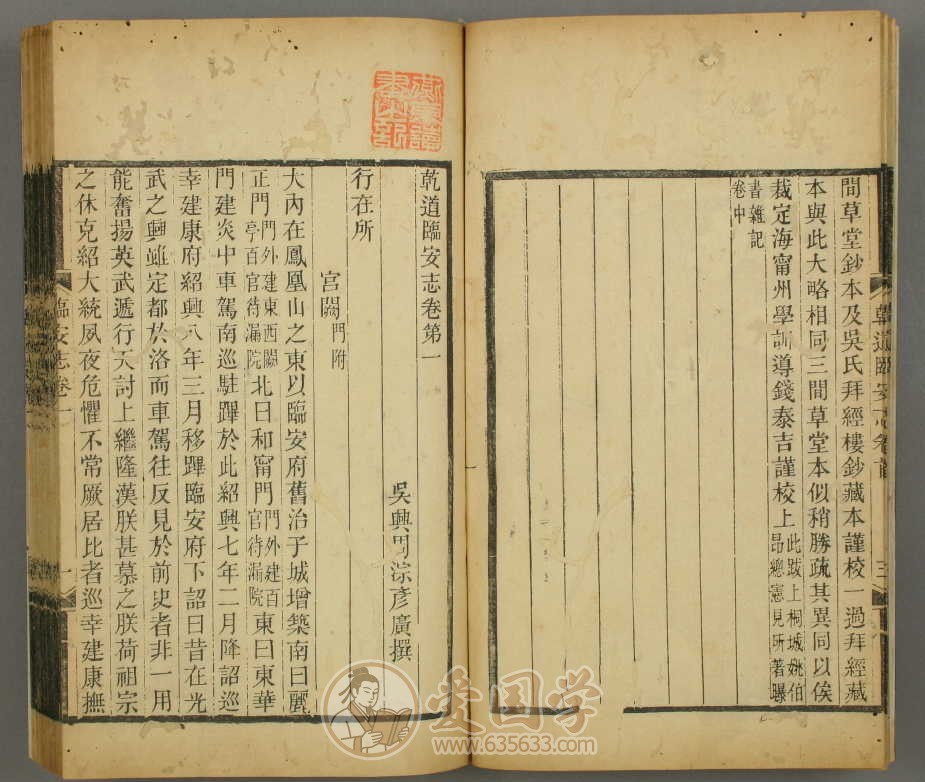 間草堂鈔本及吳氏拜經樓鈔藏本謹校一過拜經藏
本與此大略相同三間草堂本似稍勝疏其異同以俟
裁定海甯州學訓導錢泰吉謹校上此跋上桐城姚伯
昂總憲見所著曝
書雜記
卷中
乾道臨安志卷第一
吳興周淙彥廣撰
行在所
宮闕門附
大內在鳳凰山之東以臨安府舊治子城增築南曰麗
正門門外建東西闕
亭百官待漏院北曰和甯門門外建百
官待漏院東曰東華
門建炎中車駕南巡駐蹕於此紹興七年二月降詔巡
幸建康府紹興八年三月移蹕臨安府下詔曰昔在光
武之興雖定都於洛而車駕往反見於前史者非一用
能奮揚英武遞行天討上繼隆漢朕甚慕之朕荷祖宗
之休克紹大統夙夜危懼不常厥居比者巡幸建康撫
臨安志卷一
一
三
爱国学
www.635633.com